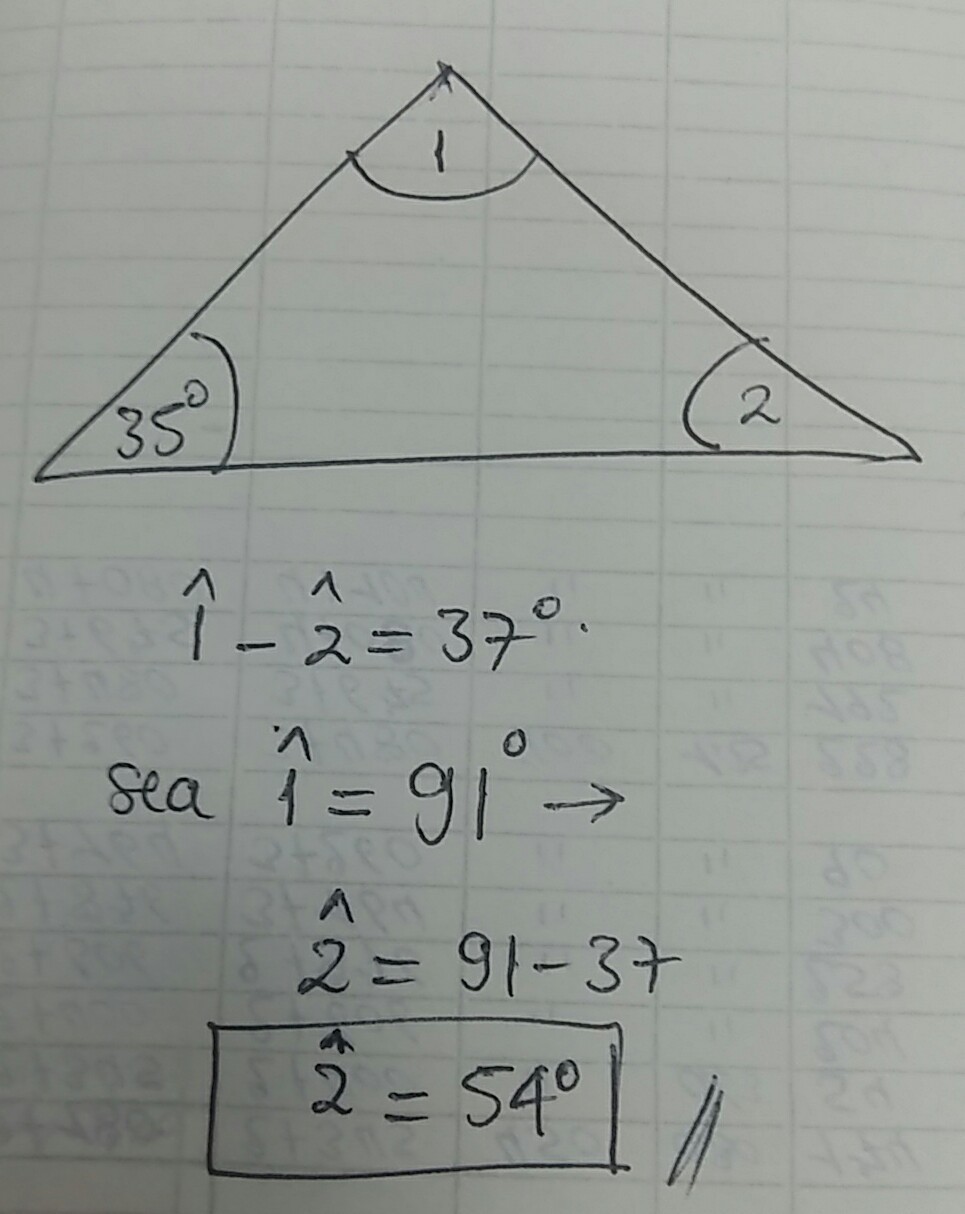 1
35° 2
1̂ - 2̂ = 37°.
sea 1̂ = 91° →
2̂ = 91 - 37
2̂ = 54° //